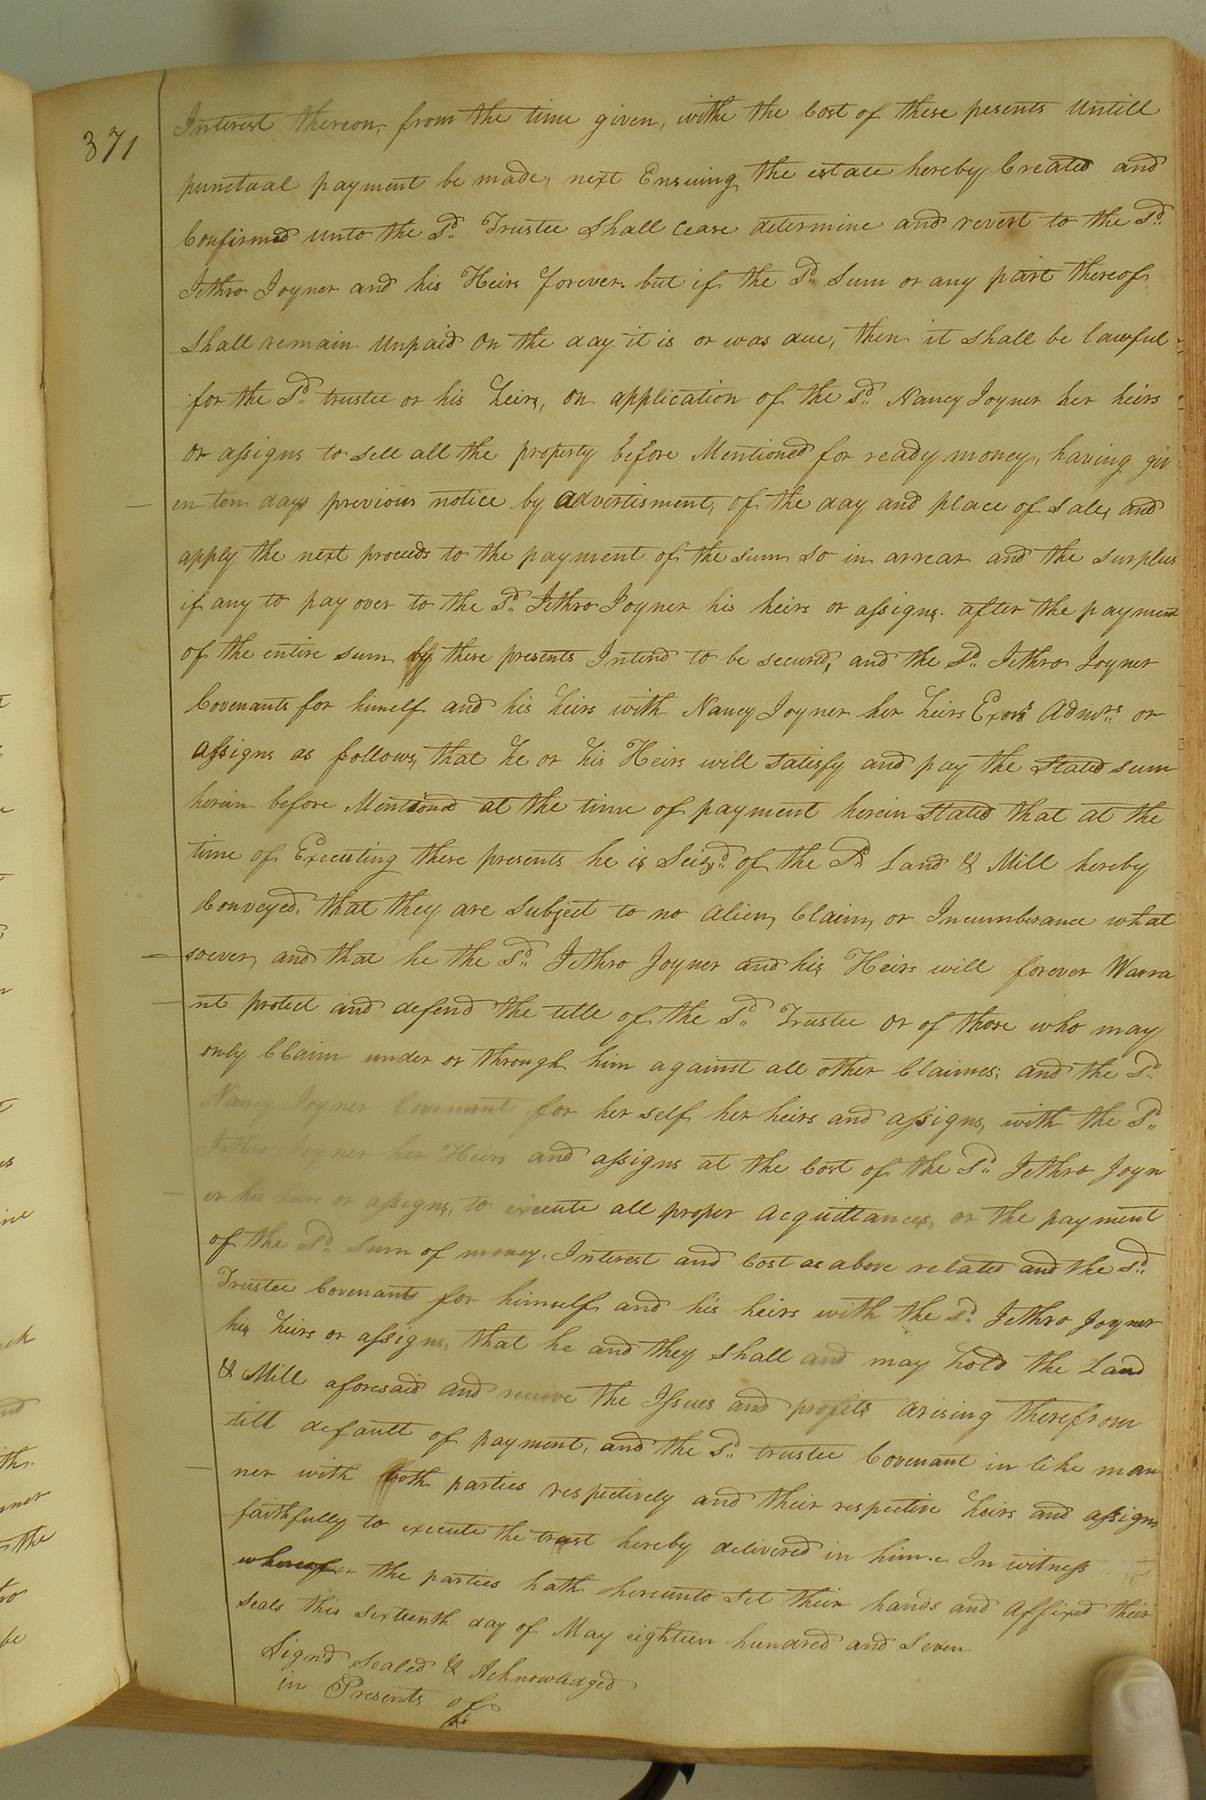 371
Interest thereon, from the time given, withe the Cost of these pesents Untill
punctual payment be made, next Ensuing the estate hereby Created and
Confirmed unto the Sd. Trustee shall cease determine and revert to the Sd.
Jethro Joyner and his Heirs forever. but if the Sd. Sum or any part thereof
shall remain Unpaid On the day it is or was due, then it shall be lawful
for the Sd. trustee or his heirs, on application of the sd. Nancy Joyner her heirs
or assigns to sell all the property before Mentioned for ready money, having giv
en ten days previous notice by advertisment, of the day and place of sale, and
apply the next proceeds to the payment of the sum so in arrear and the surplus
if any to pay over to the Sd. Jethro Joyner his heirs or assigns. after the payment
of the entire sum by these presents Intend to be secured, and the Sd. Jethro Joyner
Covenants for himself and his heirs with Nancy Joyner her heirs Exors Admrs. or
assigns as follows, that he or his Heirs will satisfy and pay the stated sum
herein before Mentioned at the time of payment herein stated that at the
time of Executing these presents he is Seizd. of the Sd. Land & Mill hereby
Conveyed, that they are subject to no alien, Claim, or Incumberance what
soever, and that he the Sd. Jethro Joyner and his Heirs will forever Warra
nt protect and defend the title of the Sd. Trustee or of those who may
only Claim under or through him against all other Claimes; and the Sd.
Nancy Joyner Covenant for her self her heirs and assigns, with the Sd.
Jethro Joyner her Heirs and assigns at the Cost of the Sd. Jethro Joyn
er his heirs or assigns, to execute all proper acquittances, or the payment
of the Sd. Sum of money. Interest and Cost as above related and the sd.
Trustee Covenant for himself and his heirs with the sd. Jethro Joyner
his heirs or assigns, that he and they shall and may hold the Land
& Mill aforesaid and receive the Issues and profits arising therefrom
till defautt of payment, and the Sd. trustee Covenant in like man
ner with both parties respectively and their respective heirs and assigns
faithfully to execute the trust hereby delivered in him. In witness
whereof the parties hath hereunto set their hands and affixed their
seals this sixteenth day of May eighteen hundred and seven
Sign'd sealed & Acknowledged
in Presents of